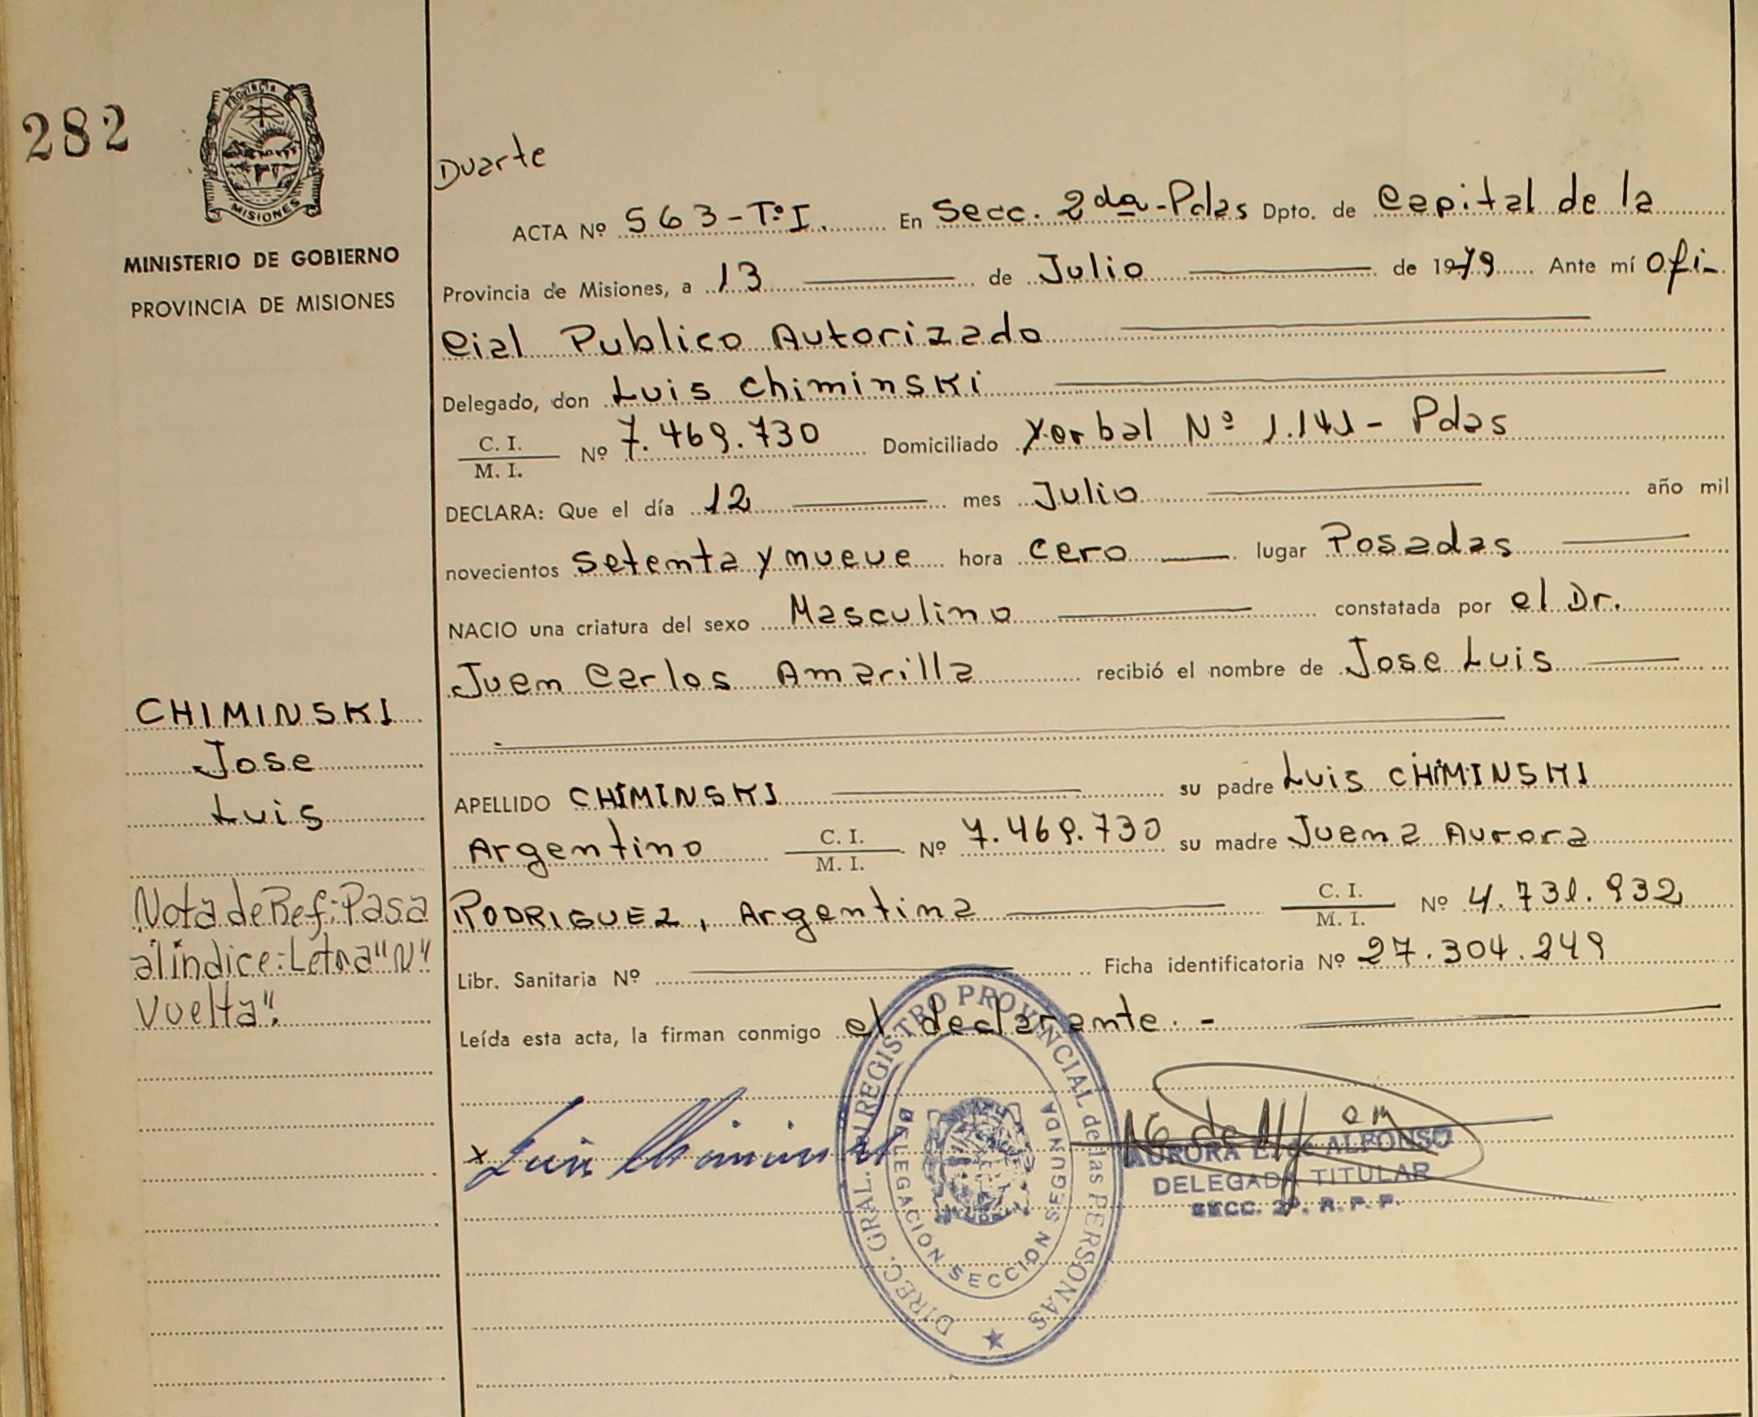 282
PROVINCIA
MISIONES
MINISTERIO DE GOBIERNO
PROVINCIA DE MISIONES
Duarte
ACTA Nº 563-Tº I. En Secc. 2da-Pdas Dpto. de Capital de la
Provincia de Misiones, a 13 de Julio de 1979 Ante mí Ofi-
cial Publico Autorizado
Delegado, don Luis Chiminski
C. I.
M. I. Nº 7.469.730 Domiciliado Yerbal Nº 1.141- Pdas
DECLARA: Que el día 12 mes Julio año mil
novecientos setenta y nueve hora cero lugar Posadas
NACIO una criatura del sexo Masculino constatada por el Dr.
Juan Carlos Amarilla recibió el nombre de Jose Luis
CHIMINSKI
Jose
Luis
APELLIDO CHIMINSKI su padre Luis CHIMINSKI
Argentino C. I.
M. I. Nº 7.469.730 su madre Juana Aurora
RODRIGUEZ, Argentina C. I.
M. I. Nº 4.731.932
Nota de Ref: Pasa
al indice: Letra "N"
Vuelta".
Libr. Sanitaria Nº Ficha identificatoria Nº 27.304.249
Leída esta acta, la firman conmigo el declarante. -
x Luis Chiminski
DIREC. GRAL. DEL REGISTRO PROVINCIAL de las PERSONAS
DELEGACION SECCION SEGUNDA
AURORA ALFONSO
DELEGADA TITULAR
SECC. 2ª. R. P. P.